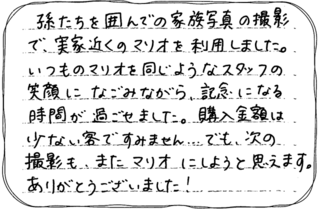 孫たちを囲んでの家族写真の撮影
で、実家近くのマリオを利用しました。
いつものマリオを同じようなスタッフの
笑顔に なごみながら、記念になる
時間が 過ごせました。購入金額は
少ない客ですみません…でも、次の
撮影も、また マリオ にしようと思えます。
ありがとうございました!